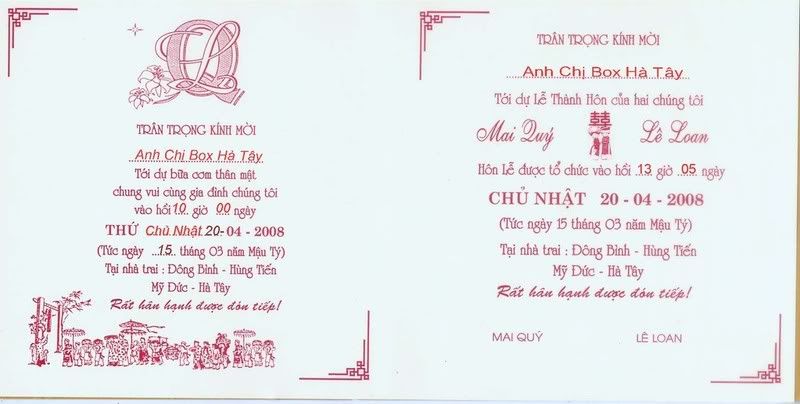 TRÂN TRỌNG KÍNH MỜI
Anh Chị Box Hà Tây
Tới dự bữa cơm thân mật
chung vui cùng gia đình chúng tôi
vào hồi 10 giờ 00 ngày
THỨ Chủ Nhật 20- 04 - 2008
(Tức ngày ...15... tháng 03 năm Mậu Tý)
Tại nhà trai : Đông Bình - Hùng Tiến
Mỹ Đức - Hà Tây
Rất hân hạnh được đón tiếp!
TRÂN TRỌNG KÍNH MỜI
Anh Chị Box Hà Tây
Tới dự Lễ Thành Hôn của hai chúng tôi
Mai Quý 囍 Lê Loan
Hôn Lễ được tổ chức vào hồi 13 giờ 05 ngày
CHỦ NHẬT 20 - 04 - 2008
(Tức ngày 15 tháng 03 năm Mậu Tý)
Tại nhà trai : Đông Bình - Hùng Tiến
Mỹ Đức - Hà Tây
Rất hân hạnh được đón tiếp!
MAI QUÝ LÊ LOAN